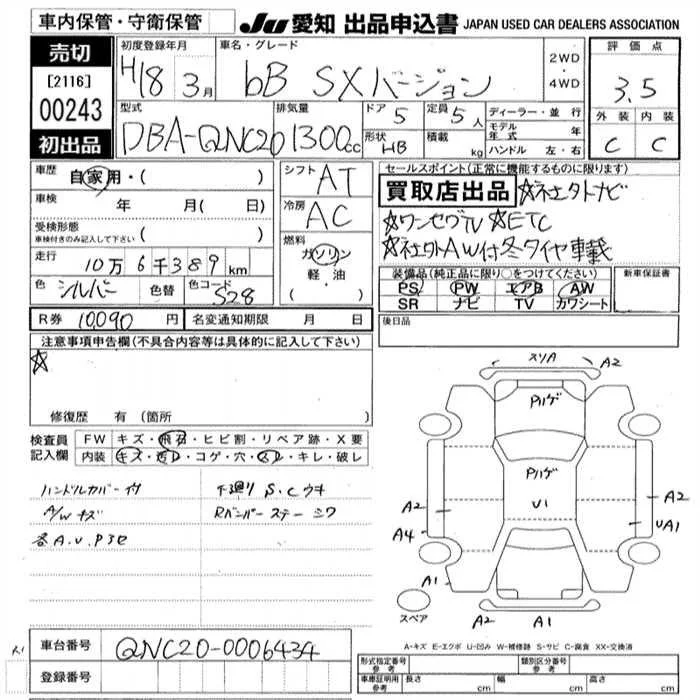 車内保管・守衛保管
JU 愛知 出品申込書 JAPAN USED CAR DEALERS ASSOCIATION
売切
[2116]
00243
初出品
初度登録年月
H18 3月
車名・グレード
bB SXバージョン
2WD
・
4WD
評価点
3.5
外装 内装
C C
型式
DBA-QNC20
排気量
1300cc
ドア 5
定員 5人
形状 HB
積載 kg
ディーラー・並行
モデル年式 年
ハンドル 左・右
車歴 自家用・( )
車検 年 月( 日)
受検形態
車検付きのみ記入して下さい ( )
走行 10万6千389km
色 シルバー 色替 色コード S28
シフト AT
冷房 AC
燃料
ガソリン
軽・油
・( )
セールスポイント(正常に機能するものに限ります)
買取店出品 ☆社外ナビ
☆ワンセグTV ☆ETC
☆社外AW付冬タイヤ車載
装備品(純正品に限り○をつけてください)
PS PW エアB AW
SR ナビ TV カワシート
新車保証書
R券 10,090円 名変通知期限 月 日
後日品
注意事項申告欄(不具合内容等は具体的に記入して下さい)
☆
修復歴 有 (箇所 )
検査員記入欄
FW キズ・飛石・ヒビ割・リペア跡・X要
内装 キズ・汚レ・コゲ・穴・スレ・キレ・破レ
ハンドルカバー付
下廻りS.Cウキ
A/Wキズ
Rバンパーステーシワ
各A.U.P3セ
スリA A2
Pハゲ
Pハゲ
U1
A2
A4
A2
UA1
A1
A2 A1
スペア
A-キズ E-エクボ U-凹み W-補修跡 S-サビ C-腐食 XX-交換済
車台番号 QNC20-0006434
登録番号
形式指定番号
参考
類別区分番号
参考
車庫証明用
参考
長さ cm 幅 cm 高さ cm